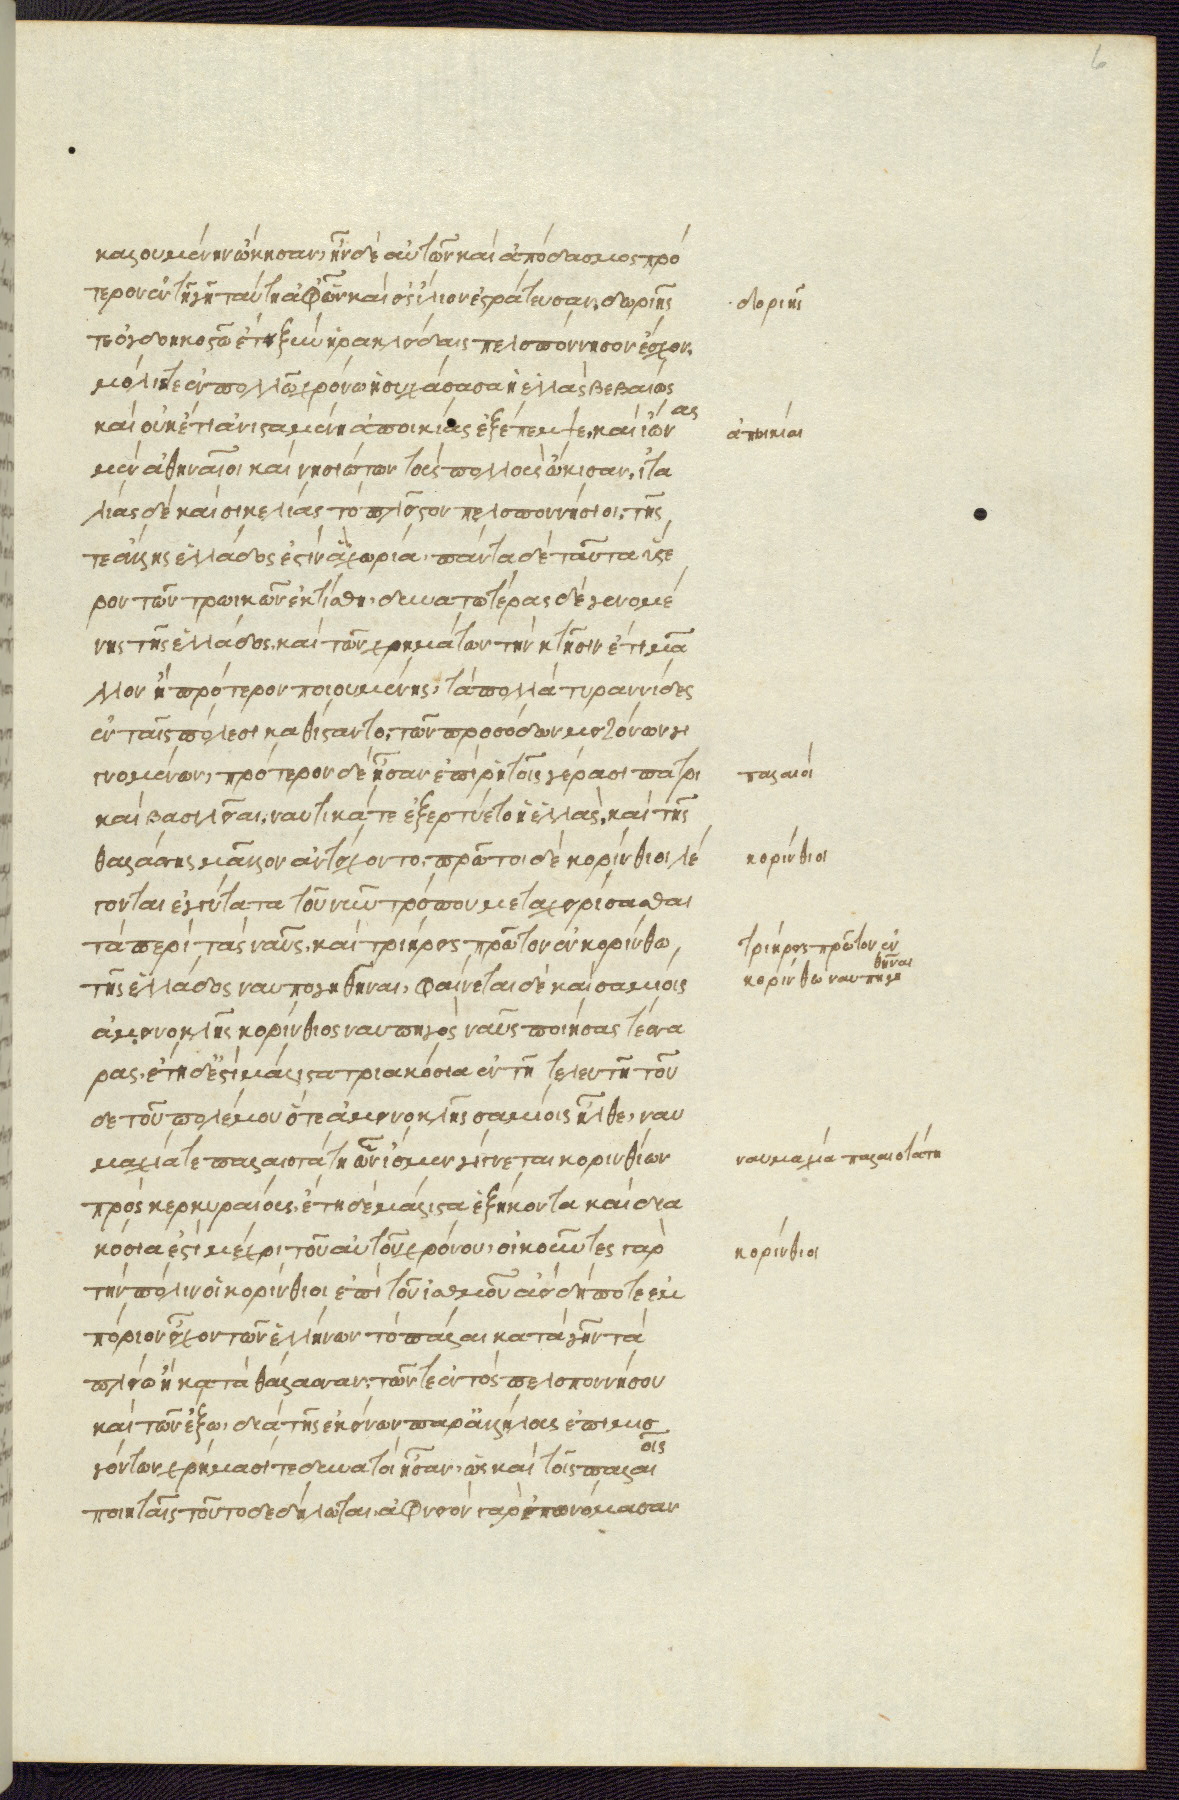 6
καλουμένην ᾤκησαν, ἦν δὲ αὐτῶν καὶ ἀποδασμὸς πρό
τερον ἐν τῇ γῇ ταύτῃ ἀφ' ὧν καὶ ἐς ἴλιον ἐστράτευσαν. δωριῆς
τε ὀγδοηκοστῷ ἔτει ξὺν ἡρακλείδαις πελοπόννησον ἔσχον.
μόλις τε ἐν πολλῷ χρόνῳ ἡσυχάσασα ἡ ἑλλὰς βεβαίως
καὶ οὐκέτι ἀνισταμένη ἀποικίας ἐξέπεμψε. καὶ ἴωνας
μὲν ἀθηναῖοι καὶ νησιωτῶν τοὺς πολλοὺς ᾤκισαν. ἰτα
λίας δὲ καὶ σικελίας τὸ πλεῖστον πελοποννήσιοι. τῆς
τε ἄλλης ἑλλάδος ἔστιν ἃ χωρία. πάντα δὲ ταῦτα ὕστε
ρον τῶν τρωικῶν ἐκτίσθη. δυνατωτέρας δὲ γενομέ
νης τῆς ἑλλάδος. καὶ τῶν χρημάτων τὴν κτῆσιν ἔτι μᾶ
λλον ἢ πρότερον ποιουμένης, τὰ πολλὰ τυραννίδες
ἐν ταῖς πόλεσι καθίσταντο, τῶν προσόδων μειζόνων γι
γνομένων, πρότερον δὲ ἦσαν ἐπὶ ῥητοῖς γέρασι πατρι
καὶ βασιλεῖαι. ναυτικά τε ἐξηρτύετο ἡ ἑλλὰς. καὶ τῆς
θαλάσσης μᾶλλον ἀντείχοντο. πρῶτοι δὲ κορίνθιοι λέ
γονται ἐγγύτατα τοῦ νῦν τρόπου μεταχειρίσασθαι
τὰ περὶ τὰς ναῦς. καὶ τριήρεις πρῶτον ἐν κορίνθῳ
τῆς ἑλλάδος ναυπηγηθῆναι. φαίνεται δὲ καὶ σαμίοις
ἀμεινοκλῆς κορίνθιος ναυπηγὸς ναῦς ποιήσας τέσσα
ρας. ἔτη δ' ἐστὶ μάλιστα τριακόσια ἐν τῇ τελευτῇ τοῦ
δε τοῦ πολέμου ὅτε ἀμεινοκλῆς σαμίοις ἦλθε, ναυ
μαχία τε παλαιοτάτη ὧν ἴσμεν γίγνεται κορινθίων
πρὸς κερκυραίους. ἔτη δὲ μάλιστα ἑξήκοντα καὶ δια
κόσια ἐστὶ μέχρι τοῦ αὐτοῦ χρόνου, οἰκοῦντες γαρ
τὴν πόλιν οἱ κορίνθιοι ἐπὶ τοῦ ἰσθμοῦ ἀεὶ δήποτε ἐμ
πόριον εἶχον τῶν ἑλλήνων τὸ πάλαι κατὰ γῆν τὰ
πλείω ἢ κατὰ θάλασσαν, τῶν τε ἐντὸς πελοποννήσου
καὶ τῶν ἔξω, διὰ τῆς ἐκείνων παρ' ἀλλήλους ἐπιμισ
γόντων χρήμασί τε δυνατοὶ ἦσαν, ὡς καὶ τοῖς παλαιοῖς
ποιηταῖς τοῦτο δεδήλωται. ἀφνειὸν γαρ ἐπωνόμασαν
δωριῆς
ἀποικίαι
παλαιαί
κορίνθιοι
τριήρεις πρῶτον ἐν
κορίνθῳ ναυπηγηθῆναι
ναυμαχία παλαιοτάτη
κορίνθιοι